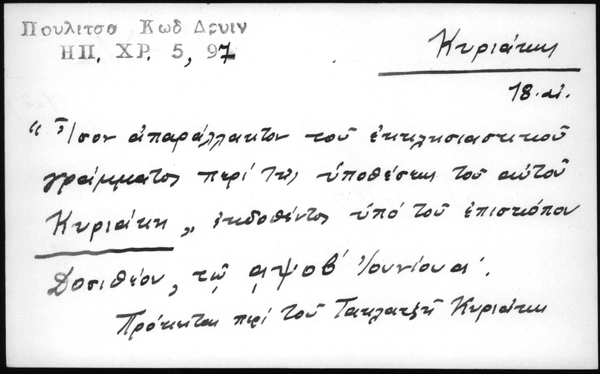 Πουλιτσα Κωδ Δρυιν
ΗΠ. ΧΡ. 5, 97
Κυριάκης
18. αἰ.
"Ἴσον ἀπαράλλακτον τοῦ ἐκκλησιαστικοῦ
γράμματος περί τῆς ὑποθέσεως τοῦ αὐτοῦ
Κυριάκη" ἐκδοθέντος ὑπό τοῦ ἐπισκόπου
Δοσιθέου, τῷ αψοβ' Ἰουνίου α'.
Πρόκειται περί τοῦ Τακλατζῆ Κυριάκη